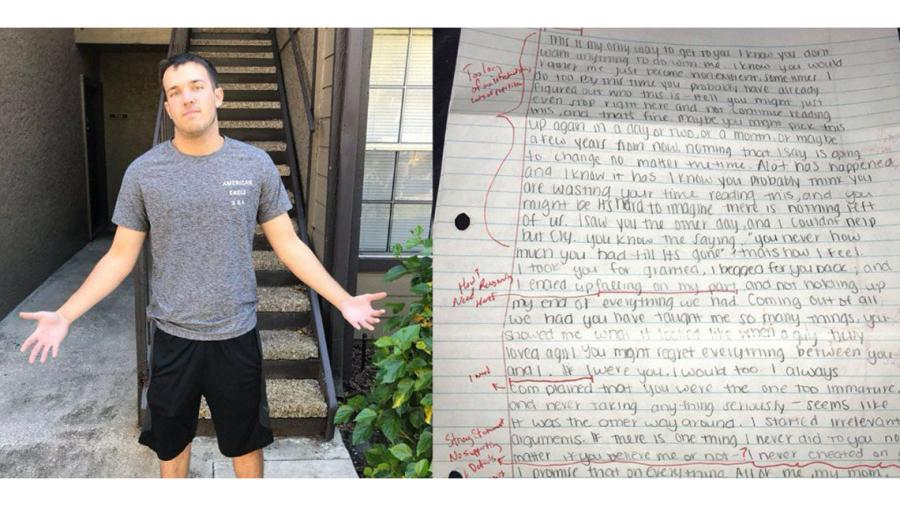 AMERICAN
EAGLE
USA
This is my only way to get to you. I know you don't
want anything to do with me. I know you would
rather me just become nonexistent. Sometimes I
do too. By this time you probably have already
figured out who this is - Hell you might just
even stop right here and not continue reading
this, and thats fine. Maybe you might pick this
up again in a day or two, or a month, or maybe
a few years from now, nothing that I say is going
to change no matter the time. Alot has happened,
and I know it has. I know you probably think you
are wasting your time reading this, and you
might be. It's hard to imagine there is nothing left
of "us". I saw you the other day, and I couldn't help
but cry. You know the saying, "you never how
much you had till its gone" thats how I feel.
I "took" you for granted, I begged for you back, and
I ended up falling on my part, and not holding up
my end of everything we had. Coming out of all
we had you have taught me so many things. You
showed me what it looked like when a guy fully
loved a girl. You might regret everything between you
and I. If I were you, I would too. I always
complained that you were the one too immature,
and never taking anything seriously - seems like
it was the other way around. I started irrelevant
arguments. If there is one thing I never did to you no
matter if you believe me or not - I never cheated on
I promise that on everything. All of me, my mom,
Too long
of an introduction,
lots of repetition
How?
Need Reasoning
Here
Strong Statement
No supporting
Details